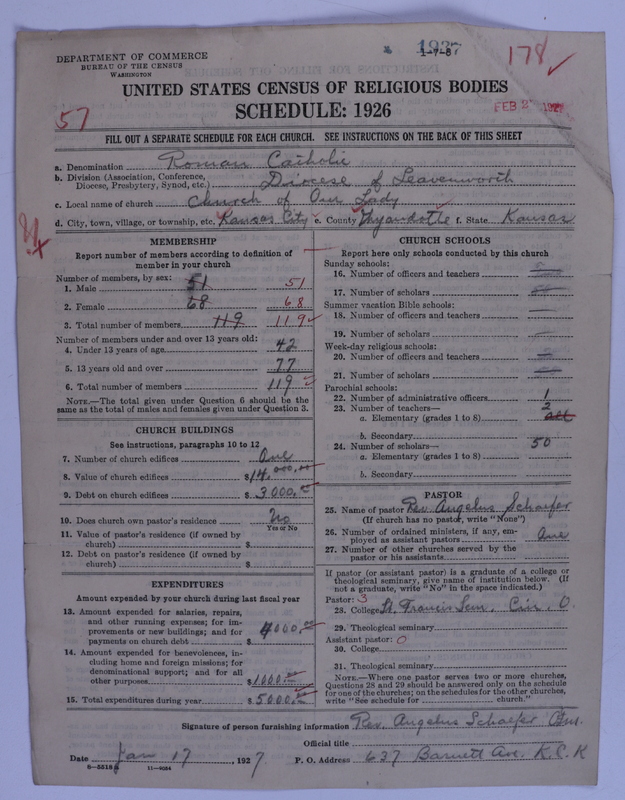 1927
1-7-8
178
DEPARTMENT OF COMMERCE
BUREAU OF THE CENSUS
WASHINGTON
UNITED STATES CENSUS OF RELIGIOUS BODIES
SCHEDULE: 1926
FEB 2 1927
57
FILL OUT A SEPARATE SCHEDULE FOR EACH CHURCH. SEE INSTRUCTIONS ON THE BACK OF THIS SHEET
a. Denomination Roman Catholic
b. Division (Association, Conference, Diocese, Presbytery, Synod, etc.) Diocese of Leavenworth
c. Local name of church Church of Our Lady
d. City, town, village, or township, etc. Kansas City e. County Wyandotte f. State Kansas
MEMBERSHIP
Report number of members according to definition of
member in your church
Number of members, by sex:
1. Male 51 51
2. Female 68 68
3. Total number of members 119 119
Number of members under and over 13 years old:
4. Under 13 years of age 42
5. 13 years old and over 77
6. Total number of members 119
NOTE.—The total given under Question 6 should be the
same as the total of males and females given under Question 3.
CHURCH BUILDINGS
See instructions, paragraphs 10 to 12
7. Number of church edifices One
8. Value of church edifices $14,000.00
9. Debt on church edifices $3000.00
10. Does church own pastor's residence No
Yes or No
11. Value of pastor's residence (if owned by
church) $
12. Debt on pastor's residence (if owned by
church) $
EXPENDITURES
Amount expended by your church during last fiscal year
13. Amount expended for salaries, repairs,
and other running expenses; for im-
provements or new buildings; and for
payments on church debt $4000.00
14. Amount expended for benevolences, in-
cluding home and foreign missions; for
denominational support; and for all
other purposes $1000.00
15. Total expenditures during year $5000.00
CHURCH SCHOOLS
Report here only schools conducted by this church
Sunday schools:
16. Number of officers and teachers
17. Number of scholars
Summer vacation Bible schools:
18. Number of officers and teachers
19. Number of scholars
Week-day religious schools:
20. Number of officers and teachers
21. Number of scholars
Parochial schools:
22. Number of administrative officers 1
23. Number of teachers— 2
a. Elementary (grades 1 to 8) all
b. Secondary
24. Number of scholars— 50
a. Elementary (grades 1 to 8)
b. Secondary
PASTOR
25. Name of pastor Rev. Angelus Schaefer
(If church has no pastor, write "None")
26. Number of ordained ministers, if any, em-
ployed as assistant pastors One
27. Number of other churches served by the
pastor or his assistants
If pastor (or assistant pastor) is a graduate of a college or
theological seminary, give name of institution below. (If
not a graduate, write "No" in the space indicated.)
Pastor: 3
28. College St. Francis Sem. Cin O.
29. Theological seminary
Assistant pastor: 0
30. College
31. Theological seminary
NOTE.—Where one pastor serves two or more churches,
Questions 28 and 29 should be answered only on the schedule
for one of the churches; on the schedules for the other churches,
write "See schedule for church."
Signature of person furnishing information Rev. Angelus Schaefer
Official title
Date Jan 17, 1927 P. O. Address 637 Barnett Av. K.C.K
11—9054